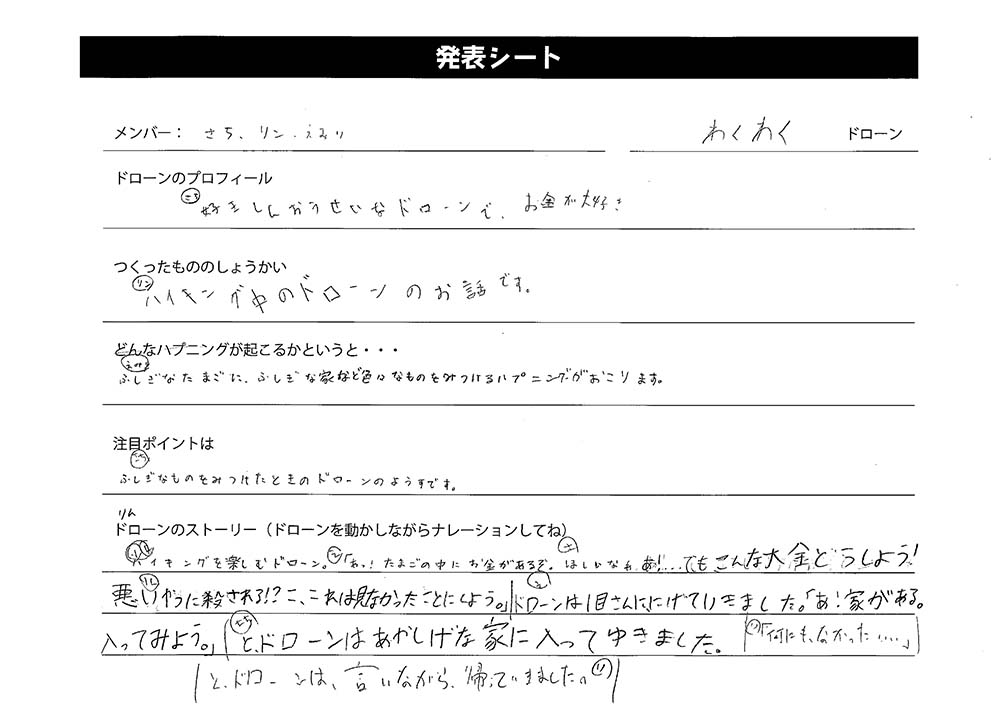 発表シート
メンバー： さち、リン、えみり わくわく ドローン
ドローンのプロフィール
さち 好きしんおうせいなドローンで、お金が大好き
つくったもののしょうかい
リン ハイキング中のドローンのお話です。
どんなハプニングが起こるかというと・・・
えみり
ふしぎなたまごに、ふしぎな家など色々なものをみつけるハプニングがおこります。
注目ポイントは
さち
ふしぎなものをみつけたときのドローンのようすです。
りん
ドローンのストーリー（ドローンを動かしながらナレーションしてね）
ハイキングを楽しむドローン。「あっ！たまごの中にお金があるぞ。ほしいなぁ、あ!…でもこんな大金どうしよう！
悪いやつに殺される!?こ、これは見なかったことにしよう。」ドローンは1目さんににげていきました。「あ！家がある。
入ってみよう。」さち と、ドローンはあやしげな家に入ってゆきました。リ「何にも、なかった…」
と、ドローンは、言いながら、帰っていきました。リ